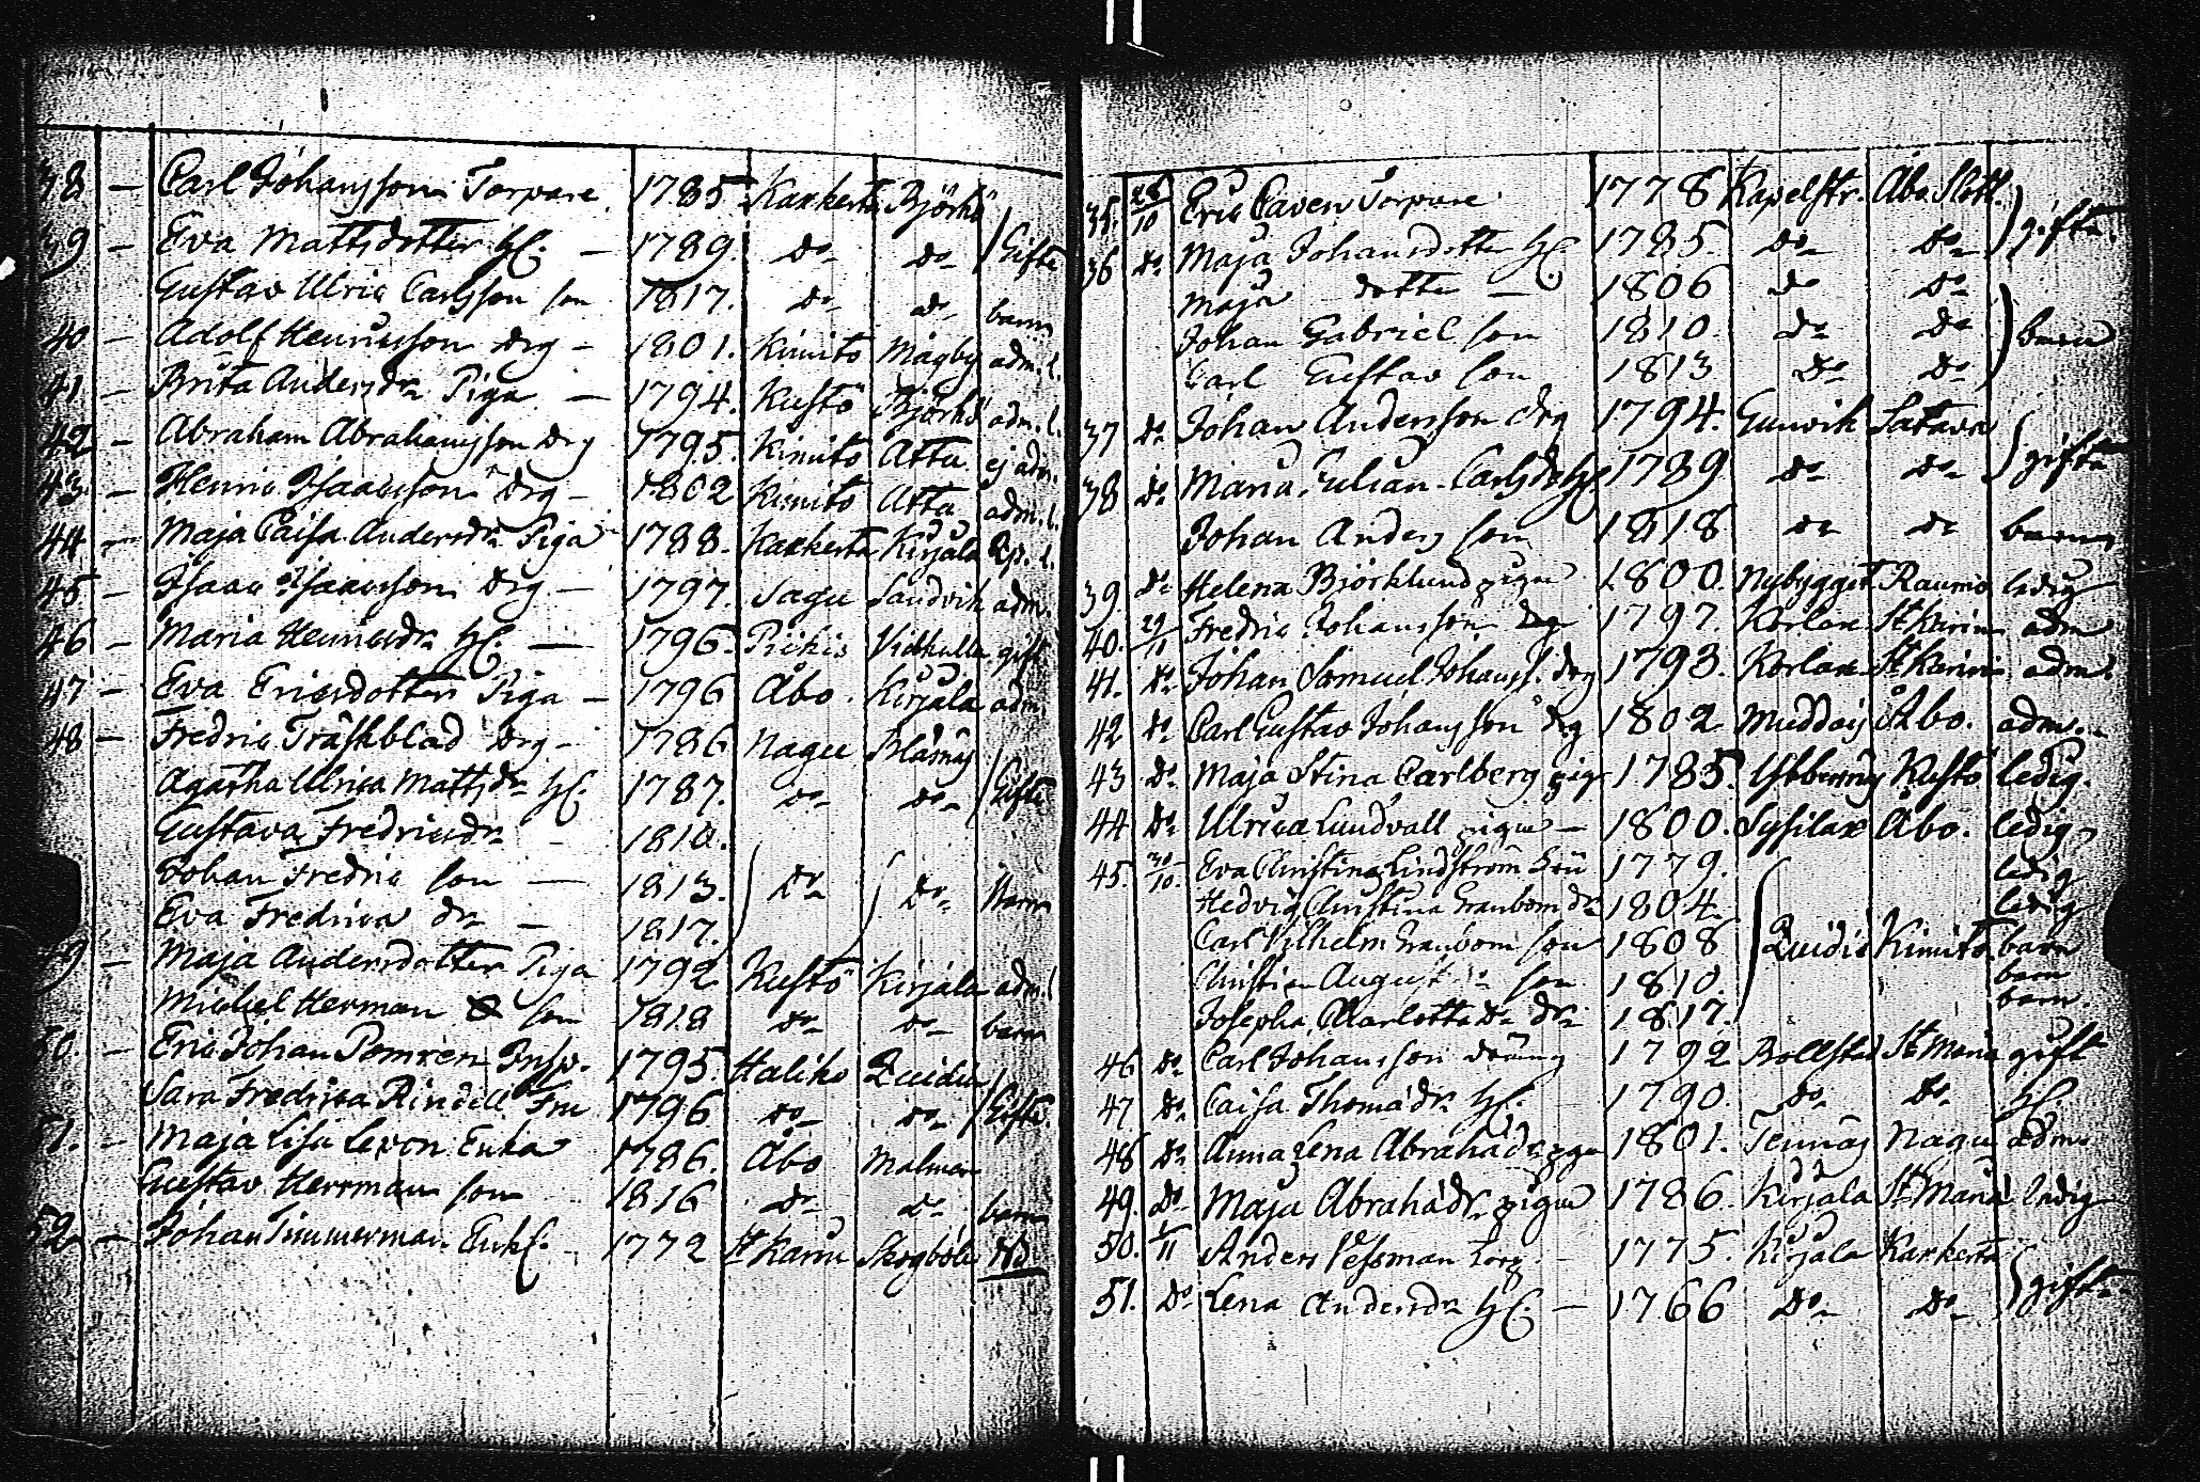 38 — Carl Johansson Torpare 1785 Karkerta Björkö
39 — Eva Mattsdotter H. — 1789. Do Do Gifte
Gustav Ulric Carlsson son 1817. Do Do barn
40 — Adolf Henricsson drg — 1801. Kimito Mågby adm. l.
41 — Brita Andersdr Piga — 1794. Kustö Björkö adm. l.
42 — Abraham Abrahamsson drg 1795. Kimito Atta ej adm.
43 — Henric Isaacsson drg — 1802 Kimito Atta adm. l.
44 — Maja Caisa Andersdr Piga 1788. Karkerta Kirjala l.
45 — Isaac Isaacsson drg. — 1797. Sagu Sandvik adm.
46 — Maria Henricsdr H. — 1796. Pikis gift
47 — Eva Ericsdotter Piga — 1796 Åbo. Kirjala adm.
48 — Fredric Träskblad drg — 1786 Nagu
Agatha Ulrica Mattsdr H. 1787. Do Do Gifte
Gustava Fredricsdr — 1810.
Johan Fredric son — 1813. Do Do Barn
Eva Fredrica dr — 1817.
49 — Maja Andersdotter Piga 1792 Kustö Kirjala adm. l
Michel Herman son 1818 Do Do barn
50. — Eric Johan Pomren Insp. 1795. Haliko Quidia
Sara Fredrica Rindell Fru 1796 Do Do Gifte.
51. — Maja Lisa Lexon Enka 1786. Åbo Malmen
Gustav Herrman son 1816 Do Do barn
52 — Johan Timmerman Enkl. — 1772 St Karin Skogböle
35. 28/10 Eric Caven Torpare 1778 Kapelstr. Åbo Slott.
36 Do Maja Johansdotter H. 1785. Do Do gifta.
Maja dotter — 1806 Do Do
Johan Gabriel son 1810. Do Do barn
Carl Gustav son 1813 Do Do
37 Do Johan Andersson drg 1794. Gunvik Satava
38 Do Maria Julian. Carlsdr H. 1789 Do Do gifta
Johan Anders son 1818 Do Do barn
39. Do Helena Björklund piga 1800. Nybygget Raumo ledig
40. 29/10 Fredric Johansson drg 1797. Korlax St Karins adm
41. Do Johan Samuel Johanss. drg 1793. Korlax St Karins adm.
42 Do Carl Gustav Johansson drg 1802 Muddais Åbo. adm.
43 Do Maja Stina Carlberg pig 1785. Kustö ledig.
44 Do Ulrica Lundvall piga — 1800. Sysilax Åbo. ledig
45. 30/10. Eva Christina Lindström Fru 1779. ledig
Hedvig Christina Granbom dr 1804. ledig
Carl Vilhelm Granbom son 1808 Quidia Kimito barn
Christian August Do son 1810. barn
Josepha Charlotta Do dr 1817. barn.
46 Do Carl Johansson dräng 1792 Bollstad St Maria gift
47 Do Caisa Thomædr H. 1790. Do Do H.
48 Do Anna Lena Abrahadr pga 1801. Tennäs Nagu adm
49. Do Maja Abrahadr piga 1786. Kirjala St Maria ledig
50. 1/11 Anders Vessman torp — 1775. Kirjala Karkerta
51. Do Lena Andersdr H. — 1766 Do Do gifta.